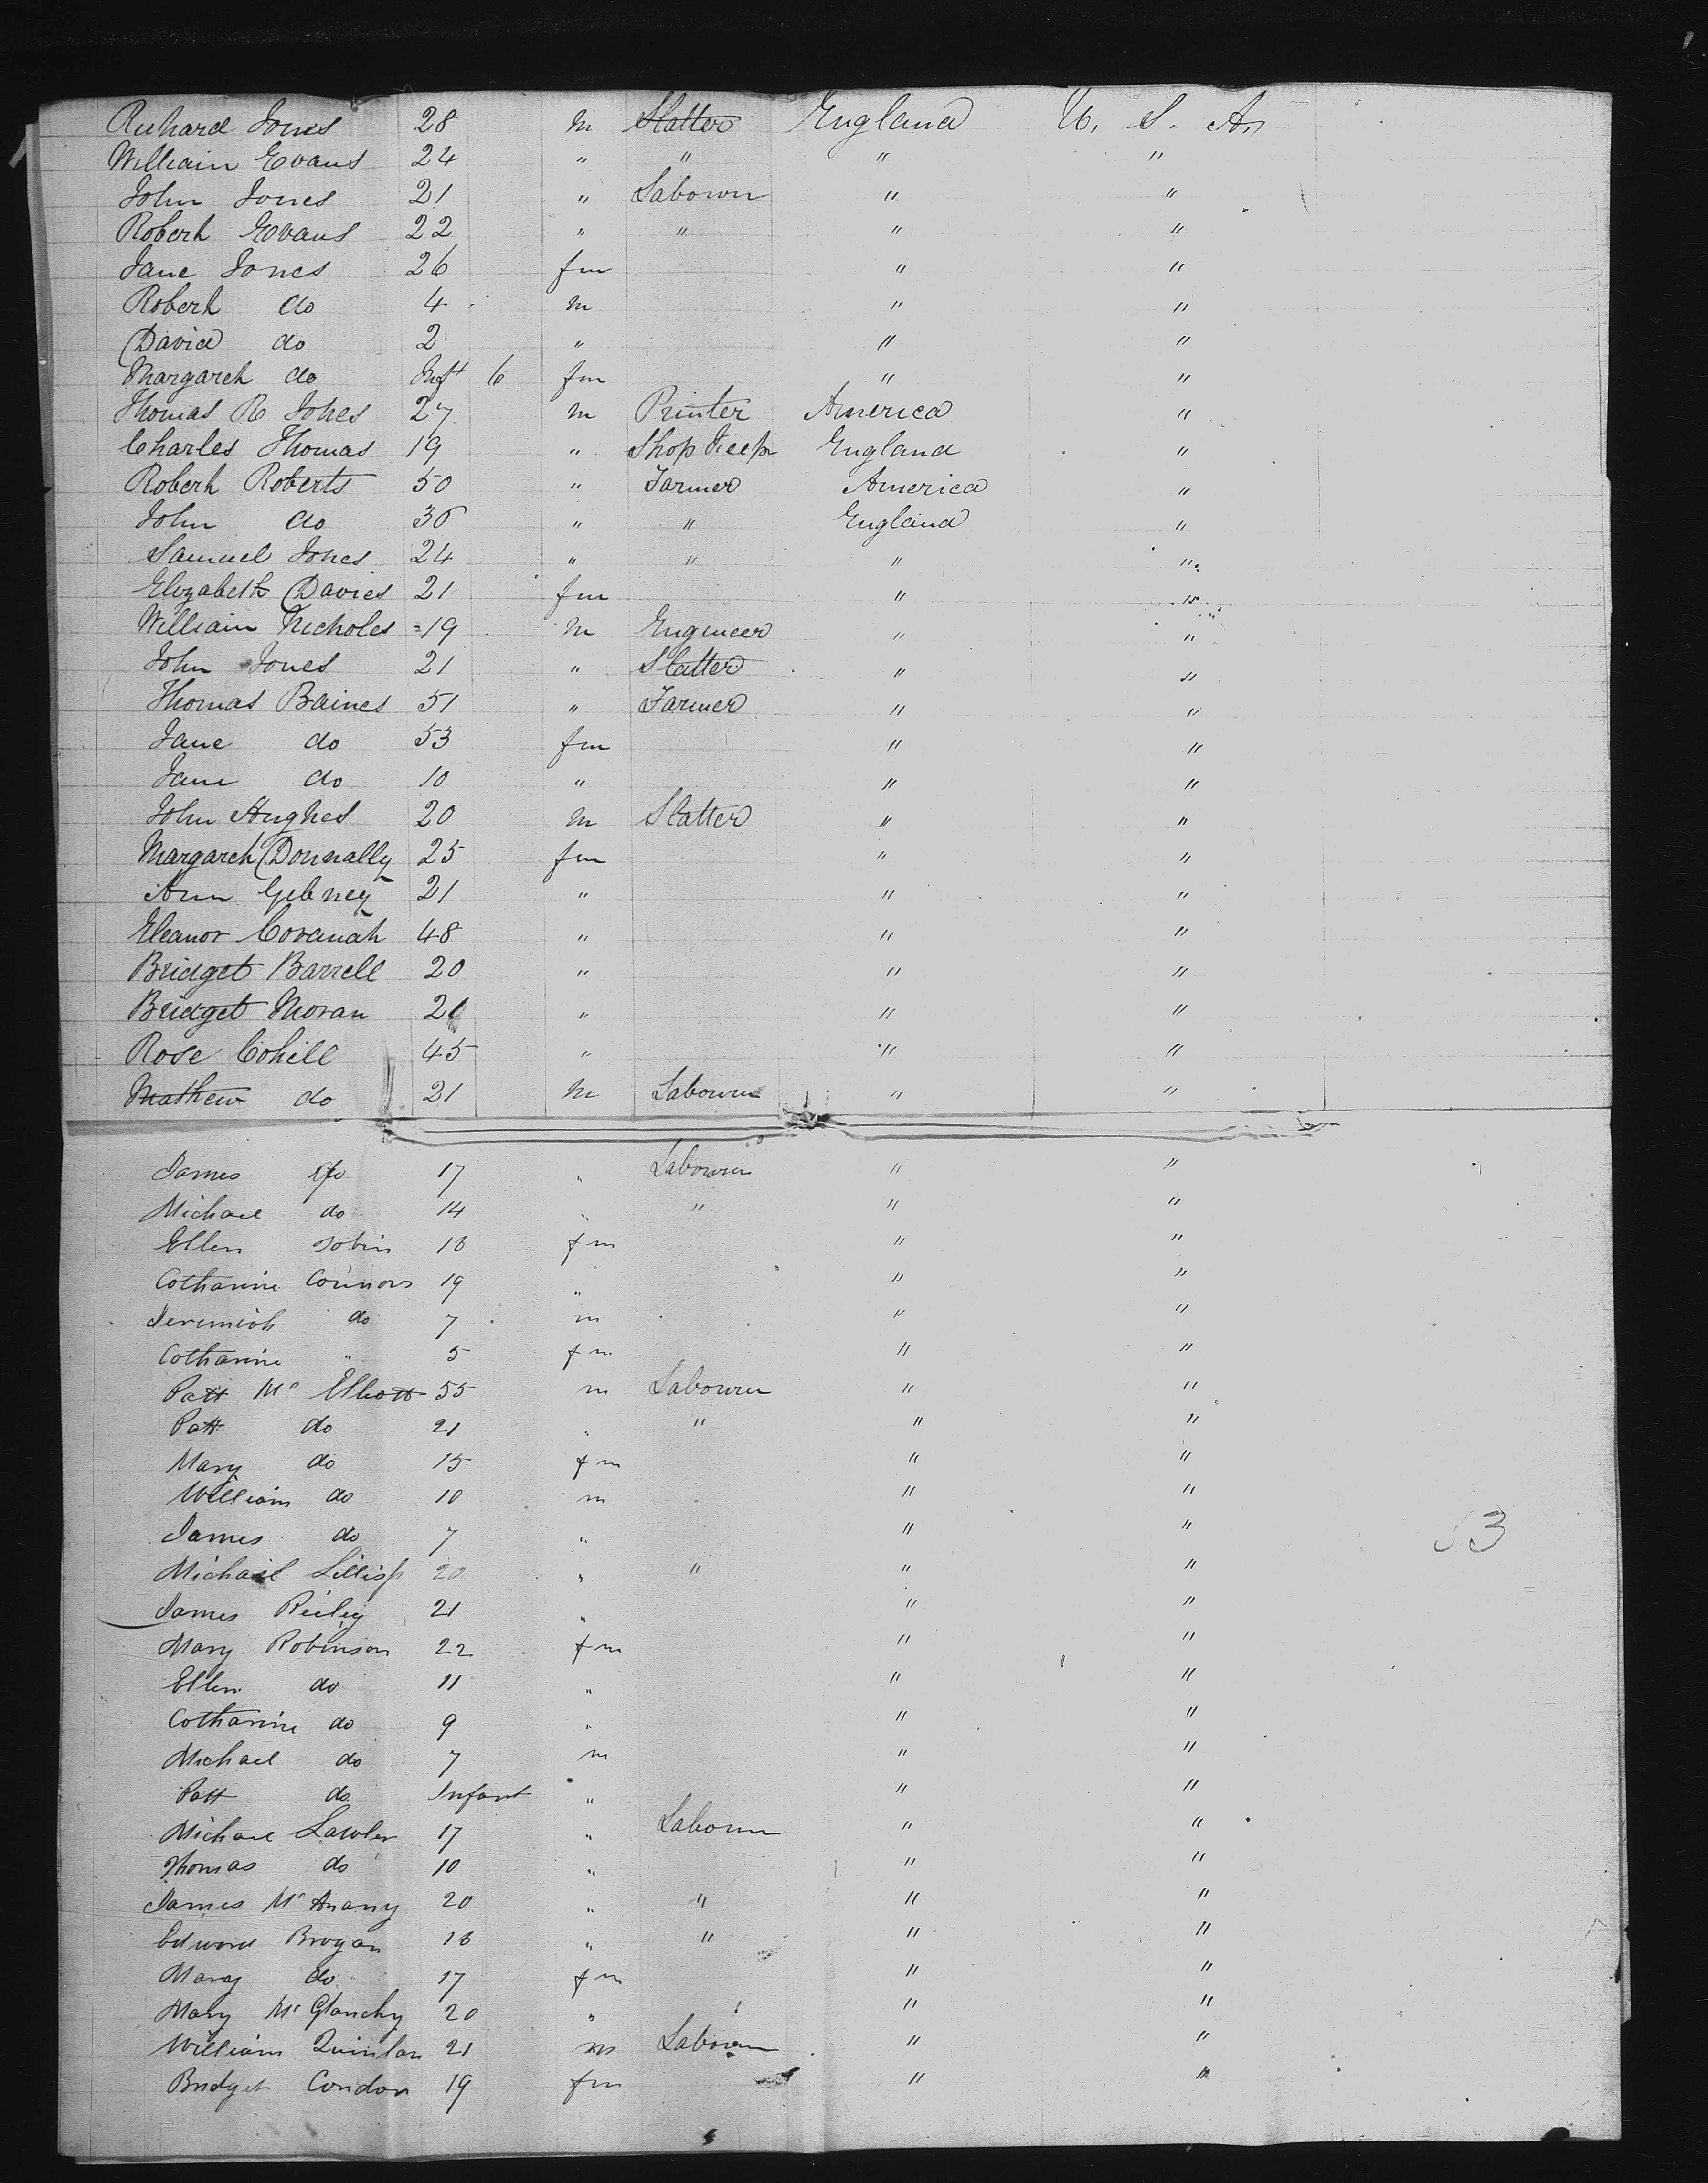 Richard Jones 28 m Slatter England U. S. A.
William Evans 24 " " " "
John Jones 21 " Labourr " "
Robert Evans 22 " " " "
Jane Jones 26 fm " "
Robert do 4 m " "
David do 2 " " "
Margaret do Inft 6 fm " "
Thomas R Jones 27 m Printer America "
Charles Thomas 19 " Shop Keepr England "
Robert Roberts 50 " Farmer America "
John do 36 " " England "
Samuel Jones 24 " " " "
Elizabeth Davies 21 fm " "
William Nicholes 19 m Engineer " "
John Jones 21 " Slatter " "
Thomas Baines 51 " Farmer " "
Jane do 53 fm " "
Jane do 10 " " "
John Hughes 20 m Slatter " "
Margaret Donnally 25 fm " "
Ann Gebney 21 " " "
Eleanor Covanah 48 " " "
Bridget Barrell 20 " " "
Bridget Moran 20 " " "
Rose Cohill 45 " " "
Mathew do 21 m Labourr " "
James do 17 " Labourer " "
Michael do 14 " " " "
Ellen Tobin 18 fm " "
Catharine Connors 19 " " "
Jeremiah do 7 m " "
Catharine " 5 fm " "
Patt Mc Elliott 55 m Labourer " "
Patt do 21 " " " "
Mary do 15 fm " "
William do 10 m " "
James do 7 " " "
Michael 20 " " " "
James Reiley 21 " " "
Mary Robinson 22 fm " "
Ellen do 11 " " "
Catharine do 9 " " "
Michael do 7 m " "
Patt do Infant " " "
Michael Lawler 17 " Labourr " "
Thomas do 10 " " "
James Mc Anany 20 " " " "
Edward Brogan 18 " " " "
Mary do 17 fm " "
Mary Mc Glanchy 20 " " "
William Quinlan 21 m Labourr " "
Bridget Condon 19 fm " "